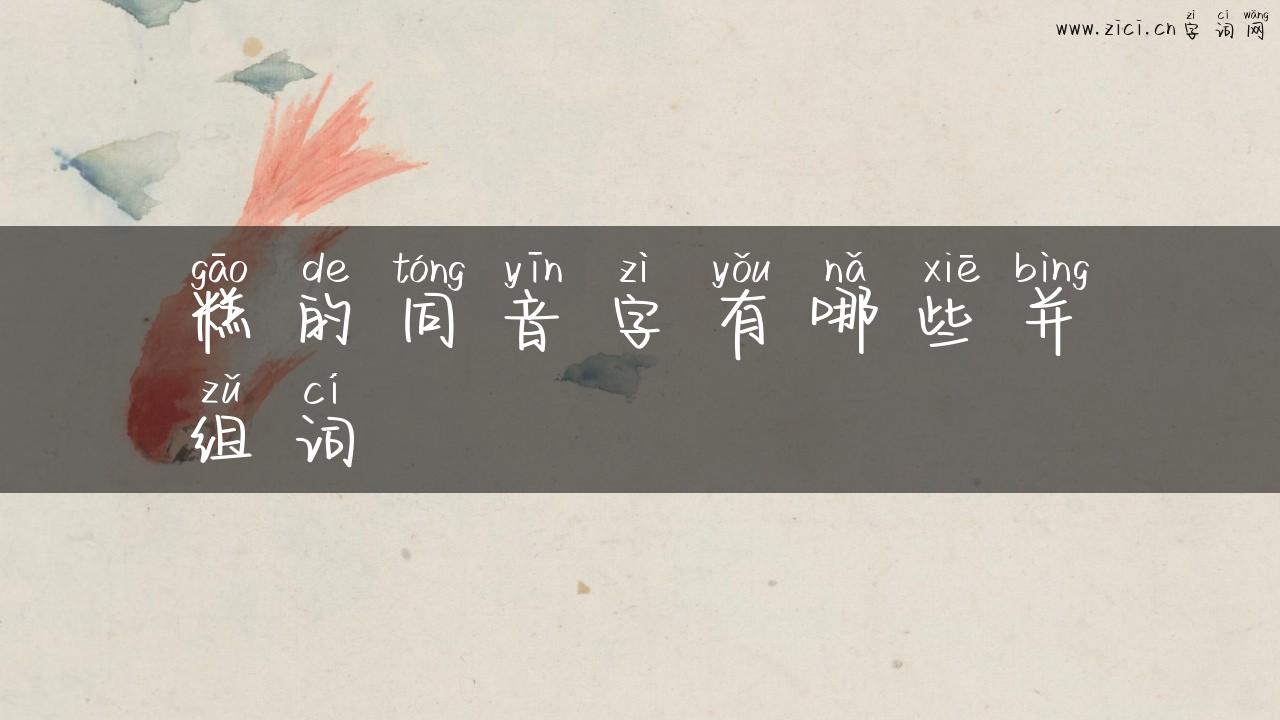 zì cí wǎng
www.zici.cn 字词网
gāo de tóng yīn zì yǒu nǎ xiē bìng
糕的同音字有哪些并
zǔ cí
组词